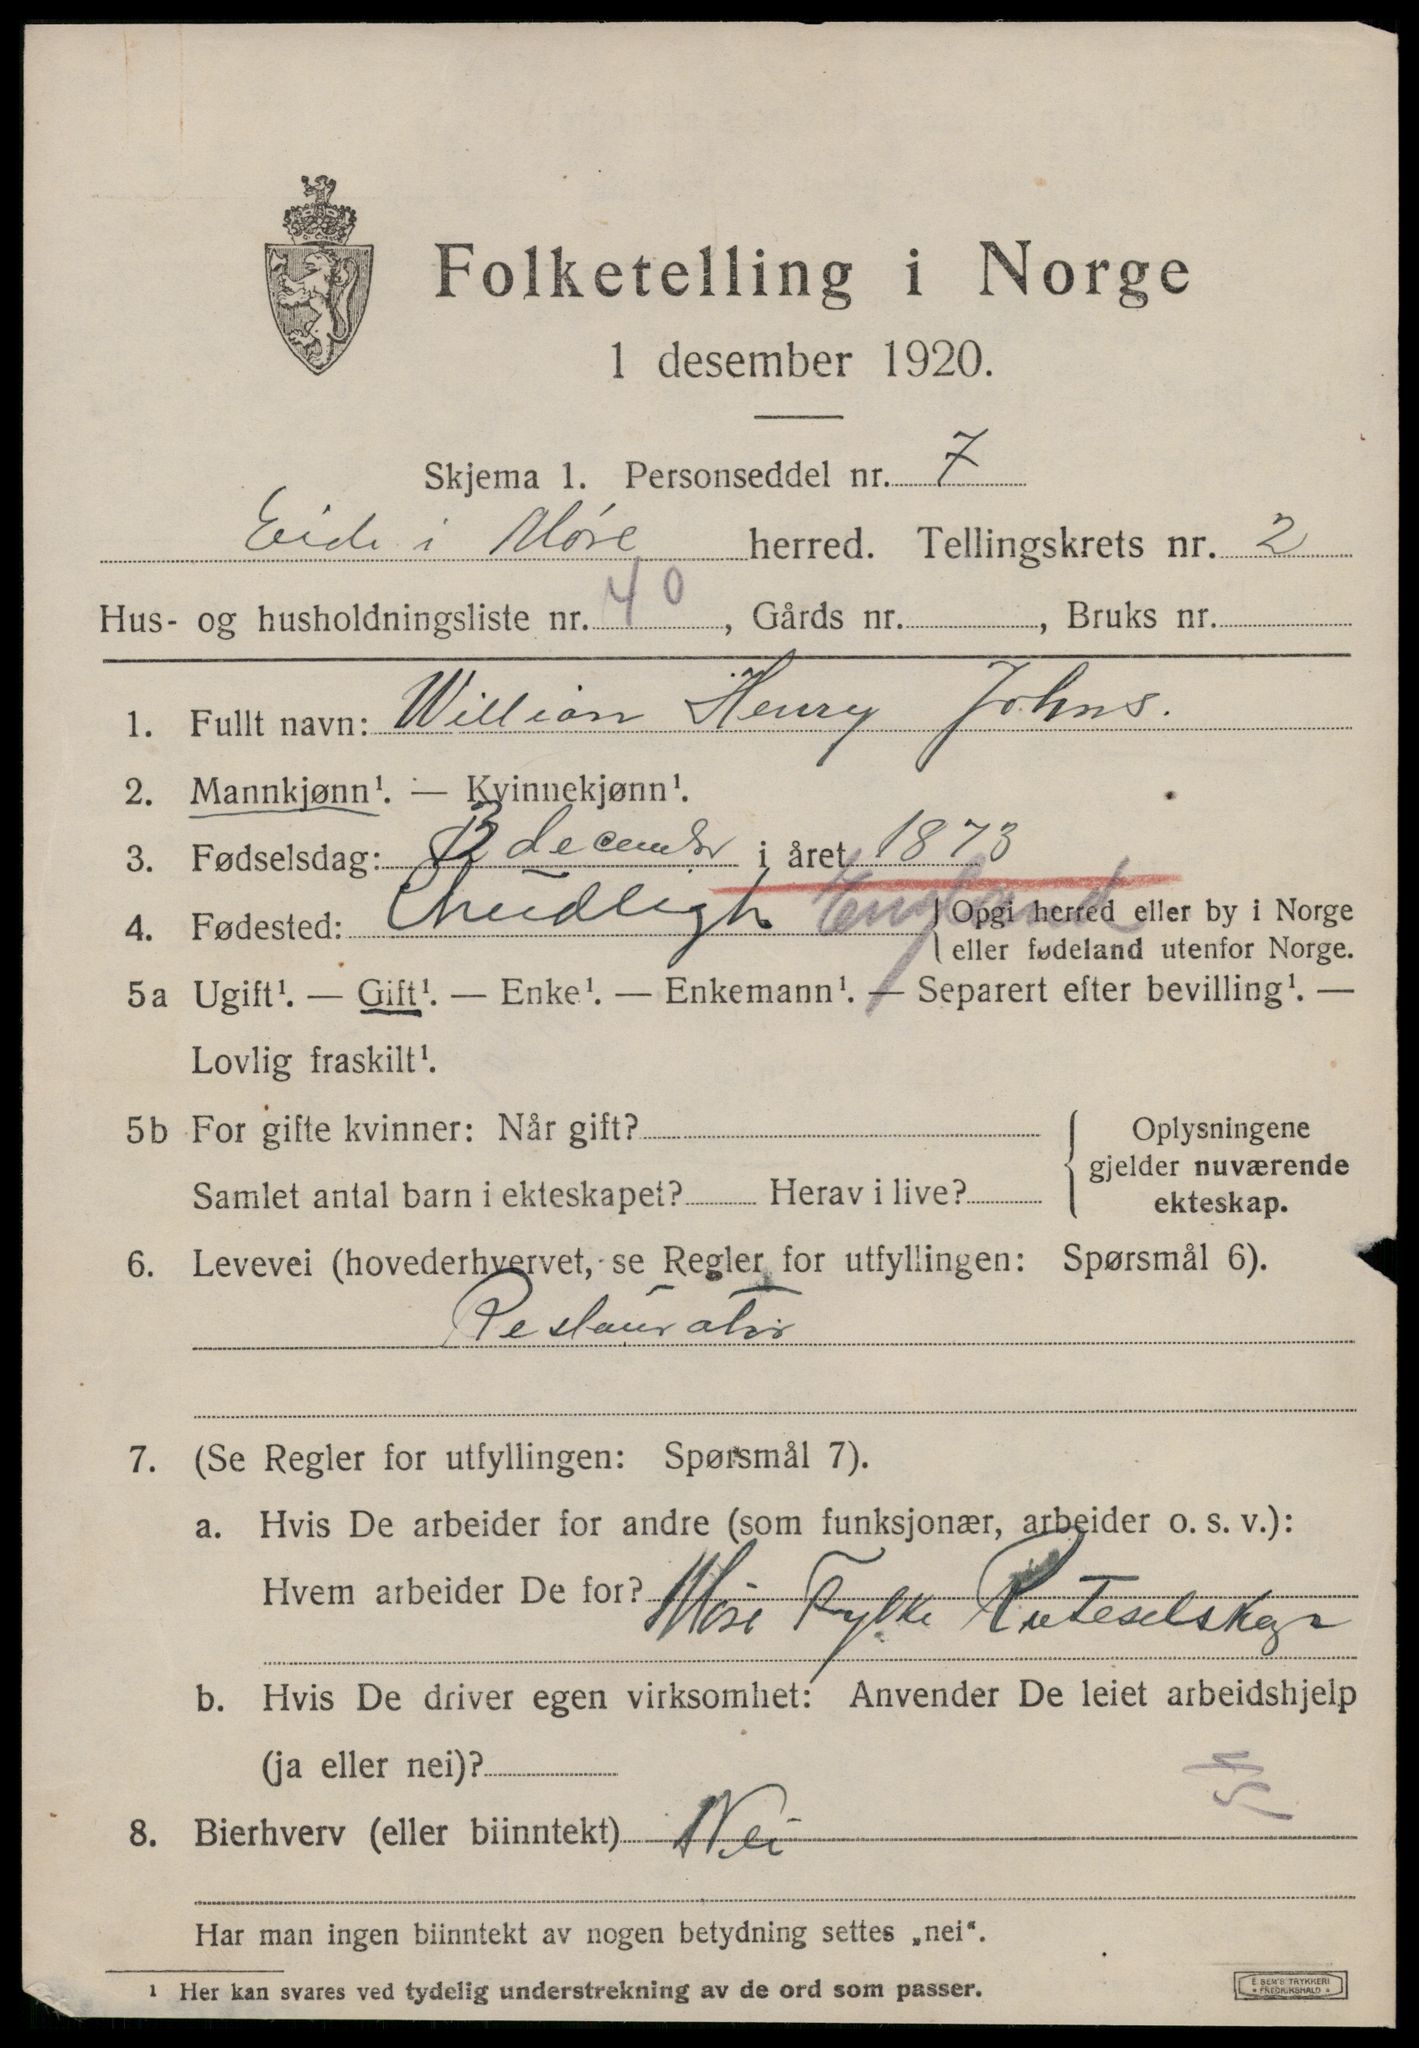 Folketelling i Norge
1 desember 1920.
Skjema 1. Personseddel nr. 7
Eide i Møre herred. Tellingskrets nr. 2
Hus- og husholdningsliste nr. 40, Gårds nr. , Bruks nr.
1. Fullt navn: William Henry Johns.
2. Mannkjønn¹. — Kvinnekjønn¹.
3. Fødselsdag: december i året 1873
4. Fødested: Chudligh England Opgi herred eller by i Norge
eller fødeland utenfor Norge.
5a Ugift¹. — Gift¹. — Enke¹. — Enkemann¹. — Separert efter bevilling¹. —
Lovlig fraskilt¹.
5b For gifte kvinner: Når gift?
Samlet antal barn i ekteskapet? Herav i live?
Oplysningene
gjelder nuværende
ekteskap.
6. Levevei (hovederhvervet, se Regler for utfyllingen: Spørsmål 6).
Restauratør
7. (Se Regler for utfyllingen: Spørsmål 7).
a. Hvis De arbeider for andre (som funksjonær, arbeider o. s. v.):
Hvem arbeider De for? Møre Fylke Ruteselskap
b. Hvis De driver egen virksomhet: Anvender De leiet arbeidshjelp
(ja eller nei)?
8. Bierhverv (eller biinntekt) Nei
Har man ingen biinntekt av nogen betydning settes „nei“.
¹ Her kan svares ved tydelig understrekning av de ord som passer.
E. SEM'S TRYKKERI
* FREDRIKSHALD *